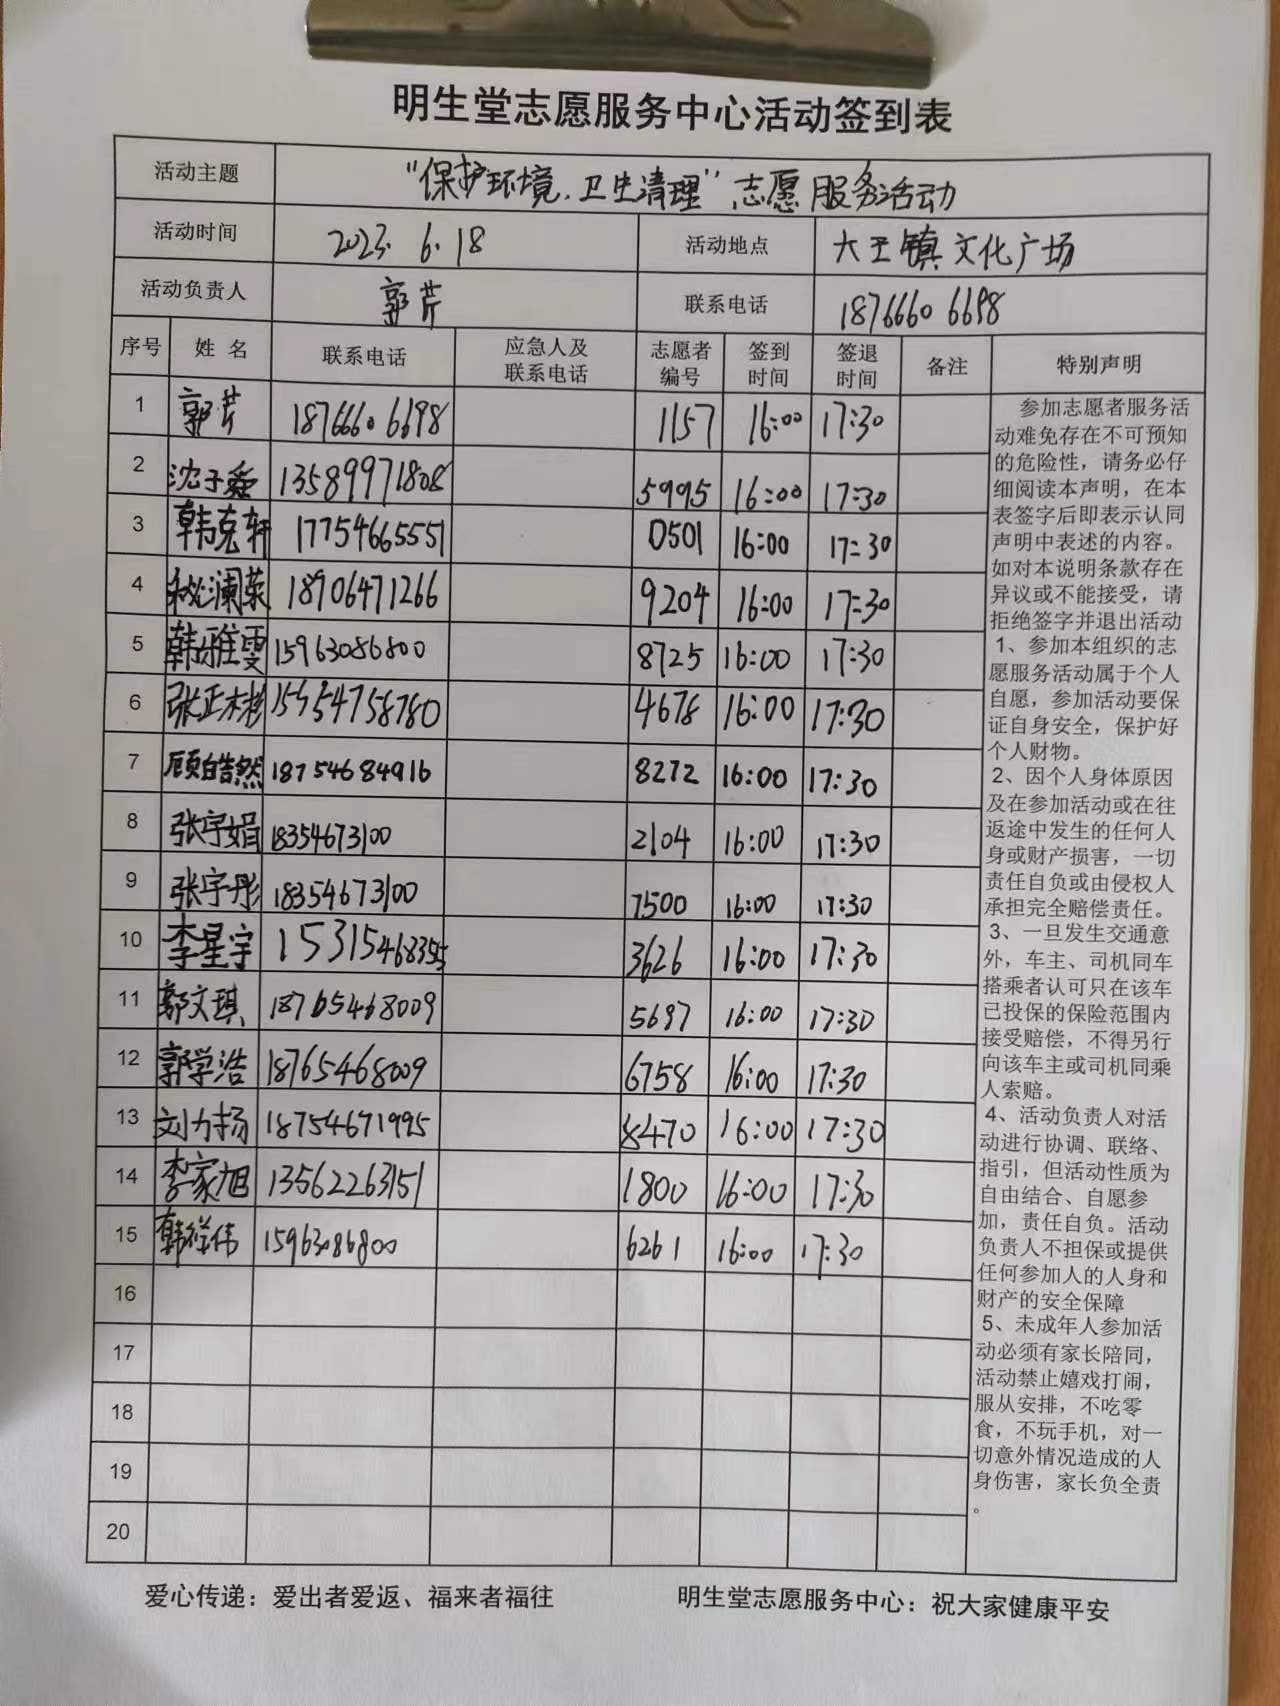 明生堂志愿服务中心活动签到表
活动主题 “保护环境.卫生清理”志愿服务活动
活动时间 2023.6.18 活动地点 大王镇文化广场
活动负责人 郭芹 联系电话 18766606698
序号 姓名 联系电话 应急人及联系电话 志愿者编号 签到时间 签退时间 备注 特别声明
1 郭芹 18766606698 1157 16:00 17:30
2 沈子 13589971808 5995 16:00 17:30
3 韩克轩 17754665551 0501 16:00 17:30
4 澜荣 18906471266 9204 16:00 17:30
5 韩雅雯 15963086800 8725 16:00 17:30
6 张正 4678 16:00 17:30
7 顾皓然 18754684916 8272 16:00 17:30
8 张宇娟 18354673100 2104 16:00 17:30
9 张宇彤 18354673100 7500 16:00 17:30
10 李星宇 15315468355 3626 16:00 17:30
11 郭文琪 18765468009 5697 16:00 17:30
12 郭学浩 18765468009 6758 16:00 17:30
13 刘力扬 18754671995 8470 16:00 17:30
14 李家旭 13562263151 1800 16:00 17:30
15 韩祥伟 15963086800 6261 16:00 17:30
16
17
18
19
20
参加志愿者服务活
动难免存在不可预知
的危险性，请务必仔
细阅读本声明，在本
表签字后即表示认同
声明中表述的内容。
如对本说明条款存在
异议或不能接受，请
拒绝签字并退出活动
1、参加本组织的志
愿服务活动属于个人
自愿，参加活动要保
证自身安全，保护好
个人财物。
2、因个人身体原因
及在参加活动或在往
返途中发生的任何人
身或财产损害，一切
责任自负或由侵权人
承担完全赔偿责任。
3、一旦发生交通意
外，车主、司机同车
搭乘者认可只在该车
已投保的保险范围内
接受赔偿，不得另行
向该车主或司机同乘
人索赔。
4、活动负责人对活
动进行协调、联络、
指引，但活动性质为
自由结合、自愿参
加，责任自负。活动
负责人不担保或提供
任何参加人的人身和
财产的安全保障
5、未成年人参加活
动必须有家长陪同，
活动禁止嬉戏打闹，
服从安排，不吃零
食，不玩手机，对一
切意外情况造成的人
身伤害，家长负全责
。
爱心传递：爱出者爱返、福来者福往 明生堂志愿服务中心：祝大家健康平安